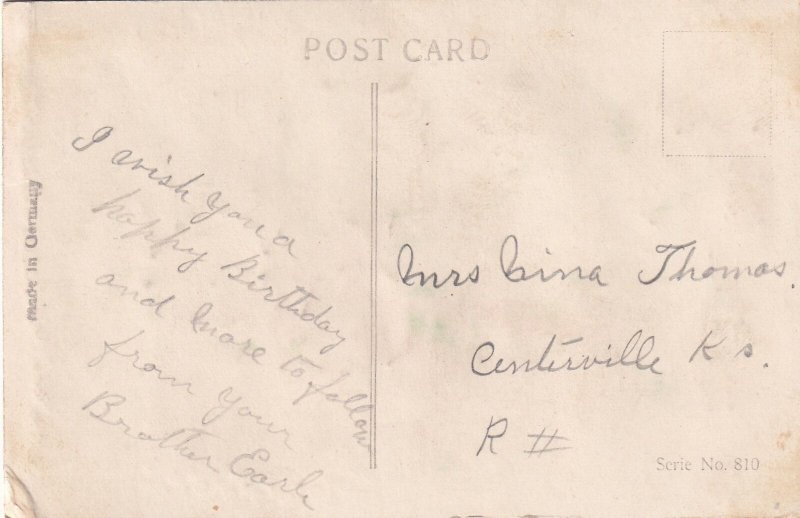 POST CARD
I wish you a
happy Birthday
and more to follow
from your
Brother Earl
Mrs Lina Thomas.
Centerville Ks.
R #
made in Germany
Serie No. 810